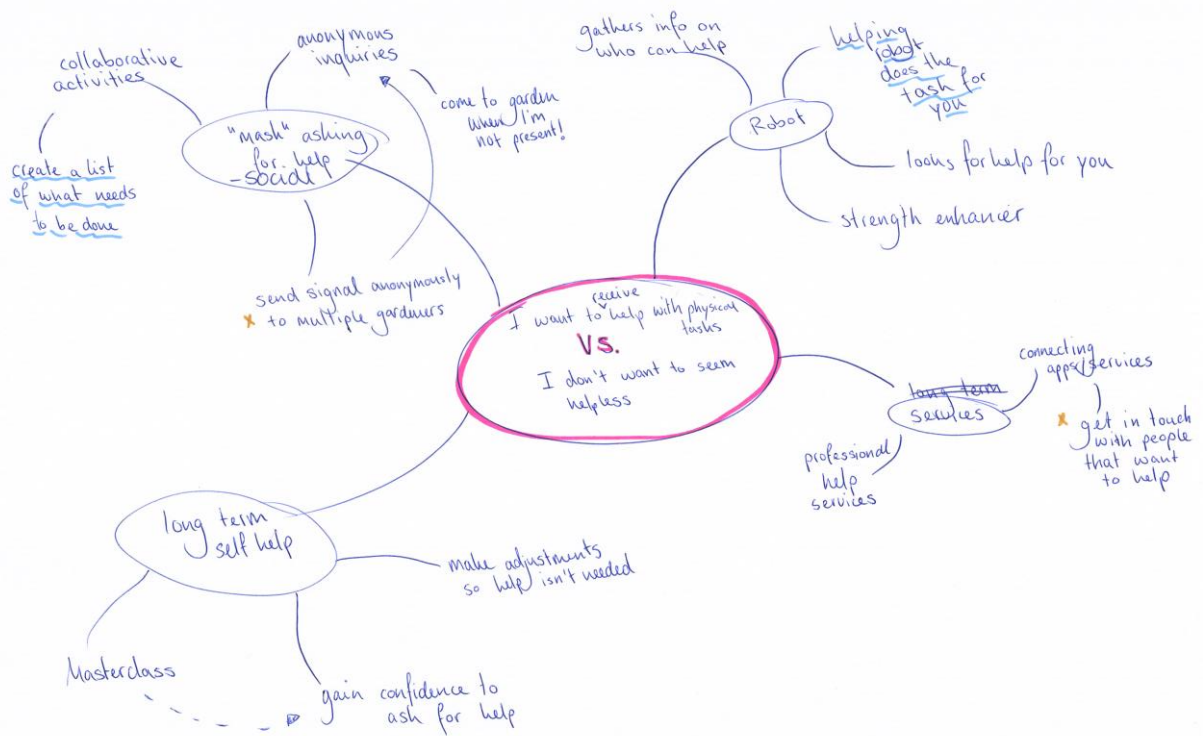 collaborative
activities
create a list
of what needs
to be done
anonymous
inquiries
come to garden
when I'm
not present!
"mash" asking
for help
-social
send signal anonymously
x to multiple gardeners
gathers info on
who can help
helping
robot
does the
task for
you
Robot
looks for help for you
strength enhancer
receive
I want to help with physical
tasks
Vs.
I don't want to seem
helpless
long term
services
connecting
apps/services
x get in touch
with people
that want
to help
professional
help
services
long term
self help
make adjustments
so help isn't needed
Masterclass
gain confidence to
ask for help